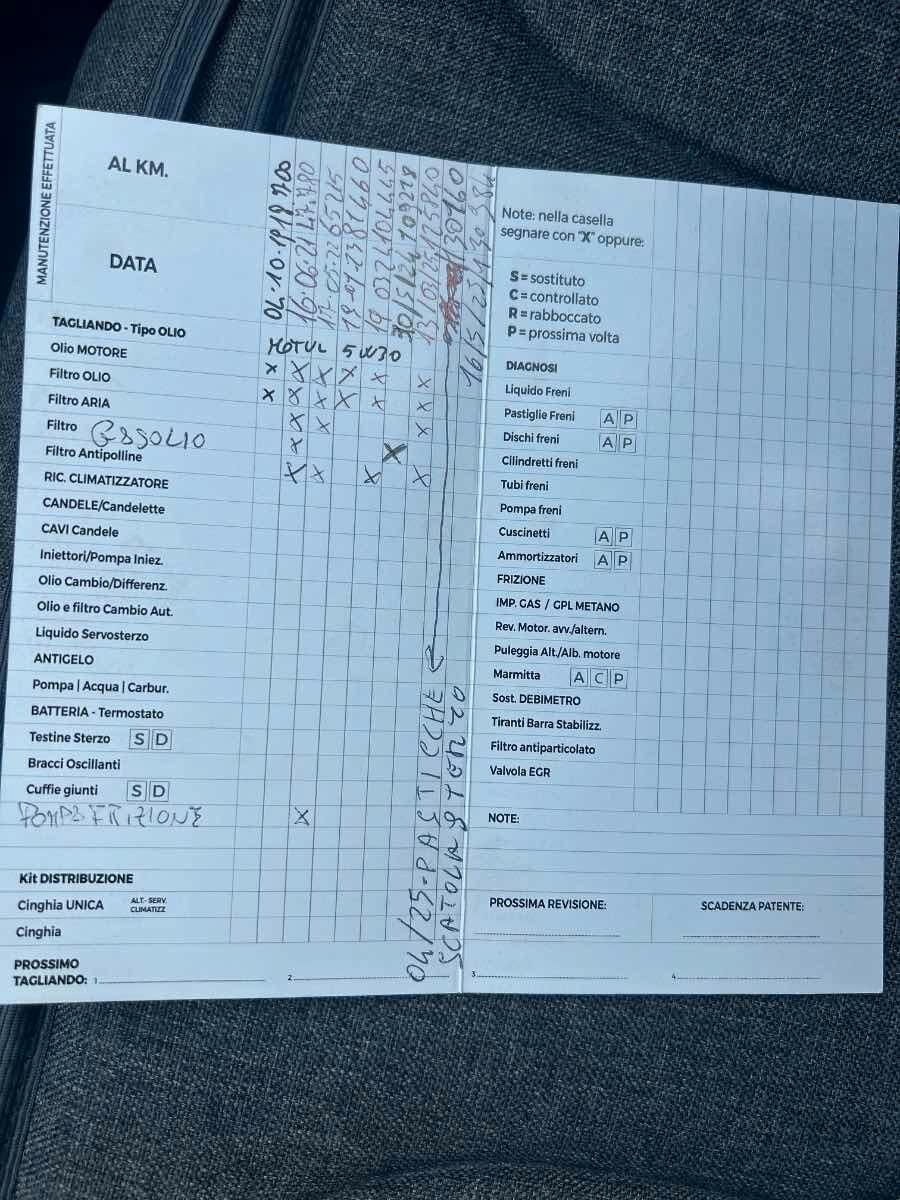 MANUTENZIONE EFFETTUATA
AL KM.
DATA
04.10.19
18 700
16.06.21
47.780
17.05.22
65215
19.01.23
81460
19
03
24
104445
30/5/24
109218
13/03/25
125840
130160
16/5/25
TAGLIANDO - Tipo OLIO
MOTUL 5W30
Olio MOTORE
X X X X X X
Filtro OLIO
X X X X X X
Filtro ARIA
X X X
Filtro GASOLIO
X X
Filtro Antipolline
X X X X
RIC. CLIMATIZZATORE
CANDELE/Candelette
CAVI Candele
Iniettori/Pompa Iniez.
Olio Cambio/Differenz.
Olio e filtro Cambio Aut.
Liquido Servosterzo
ANTIGELO
Pompa | Acqua | Carbur.
BATTERIA - Termostato
Testine Sterzo S D
Bracci Oscillanti
Cuffie giunti S D
POMPA FRIZIONE X
Kit DISTRIBUZIONE
Cinghia UNICA ALT.- SERV. CLIMATIZZ
Cinghia
PROSSIMO
TAGLIANDO: 1
2
04/25-PASTICCHE
SCATOLA STERZO
Note: nella casella
segnare con "X" oppure:
S = sostituto
C = controllato
R = rabboccato
P = prossima volta
DIAGNOSI
Liquido Freni
Pastiglie Freni A P
Dischi freni A P
Cilindretti freni
Tubi freni
Pompa freni
Cuscinetti A P
Ammortizzatori A P
FRIZIONE
IMP. GAS / GPL METANO
Rev. Motor. avv./altern.
Puleggia Alt./Alb. motore
Marmitta A C P
Sost. DEBIMETRO
Tiranti Barra Stabilizz.
Filtro antiparticolato
Valvola EGR
NOTE:
PROSSIMA REVISIONE:
SCADENZA PATENTE:
3
4